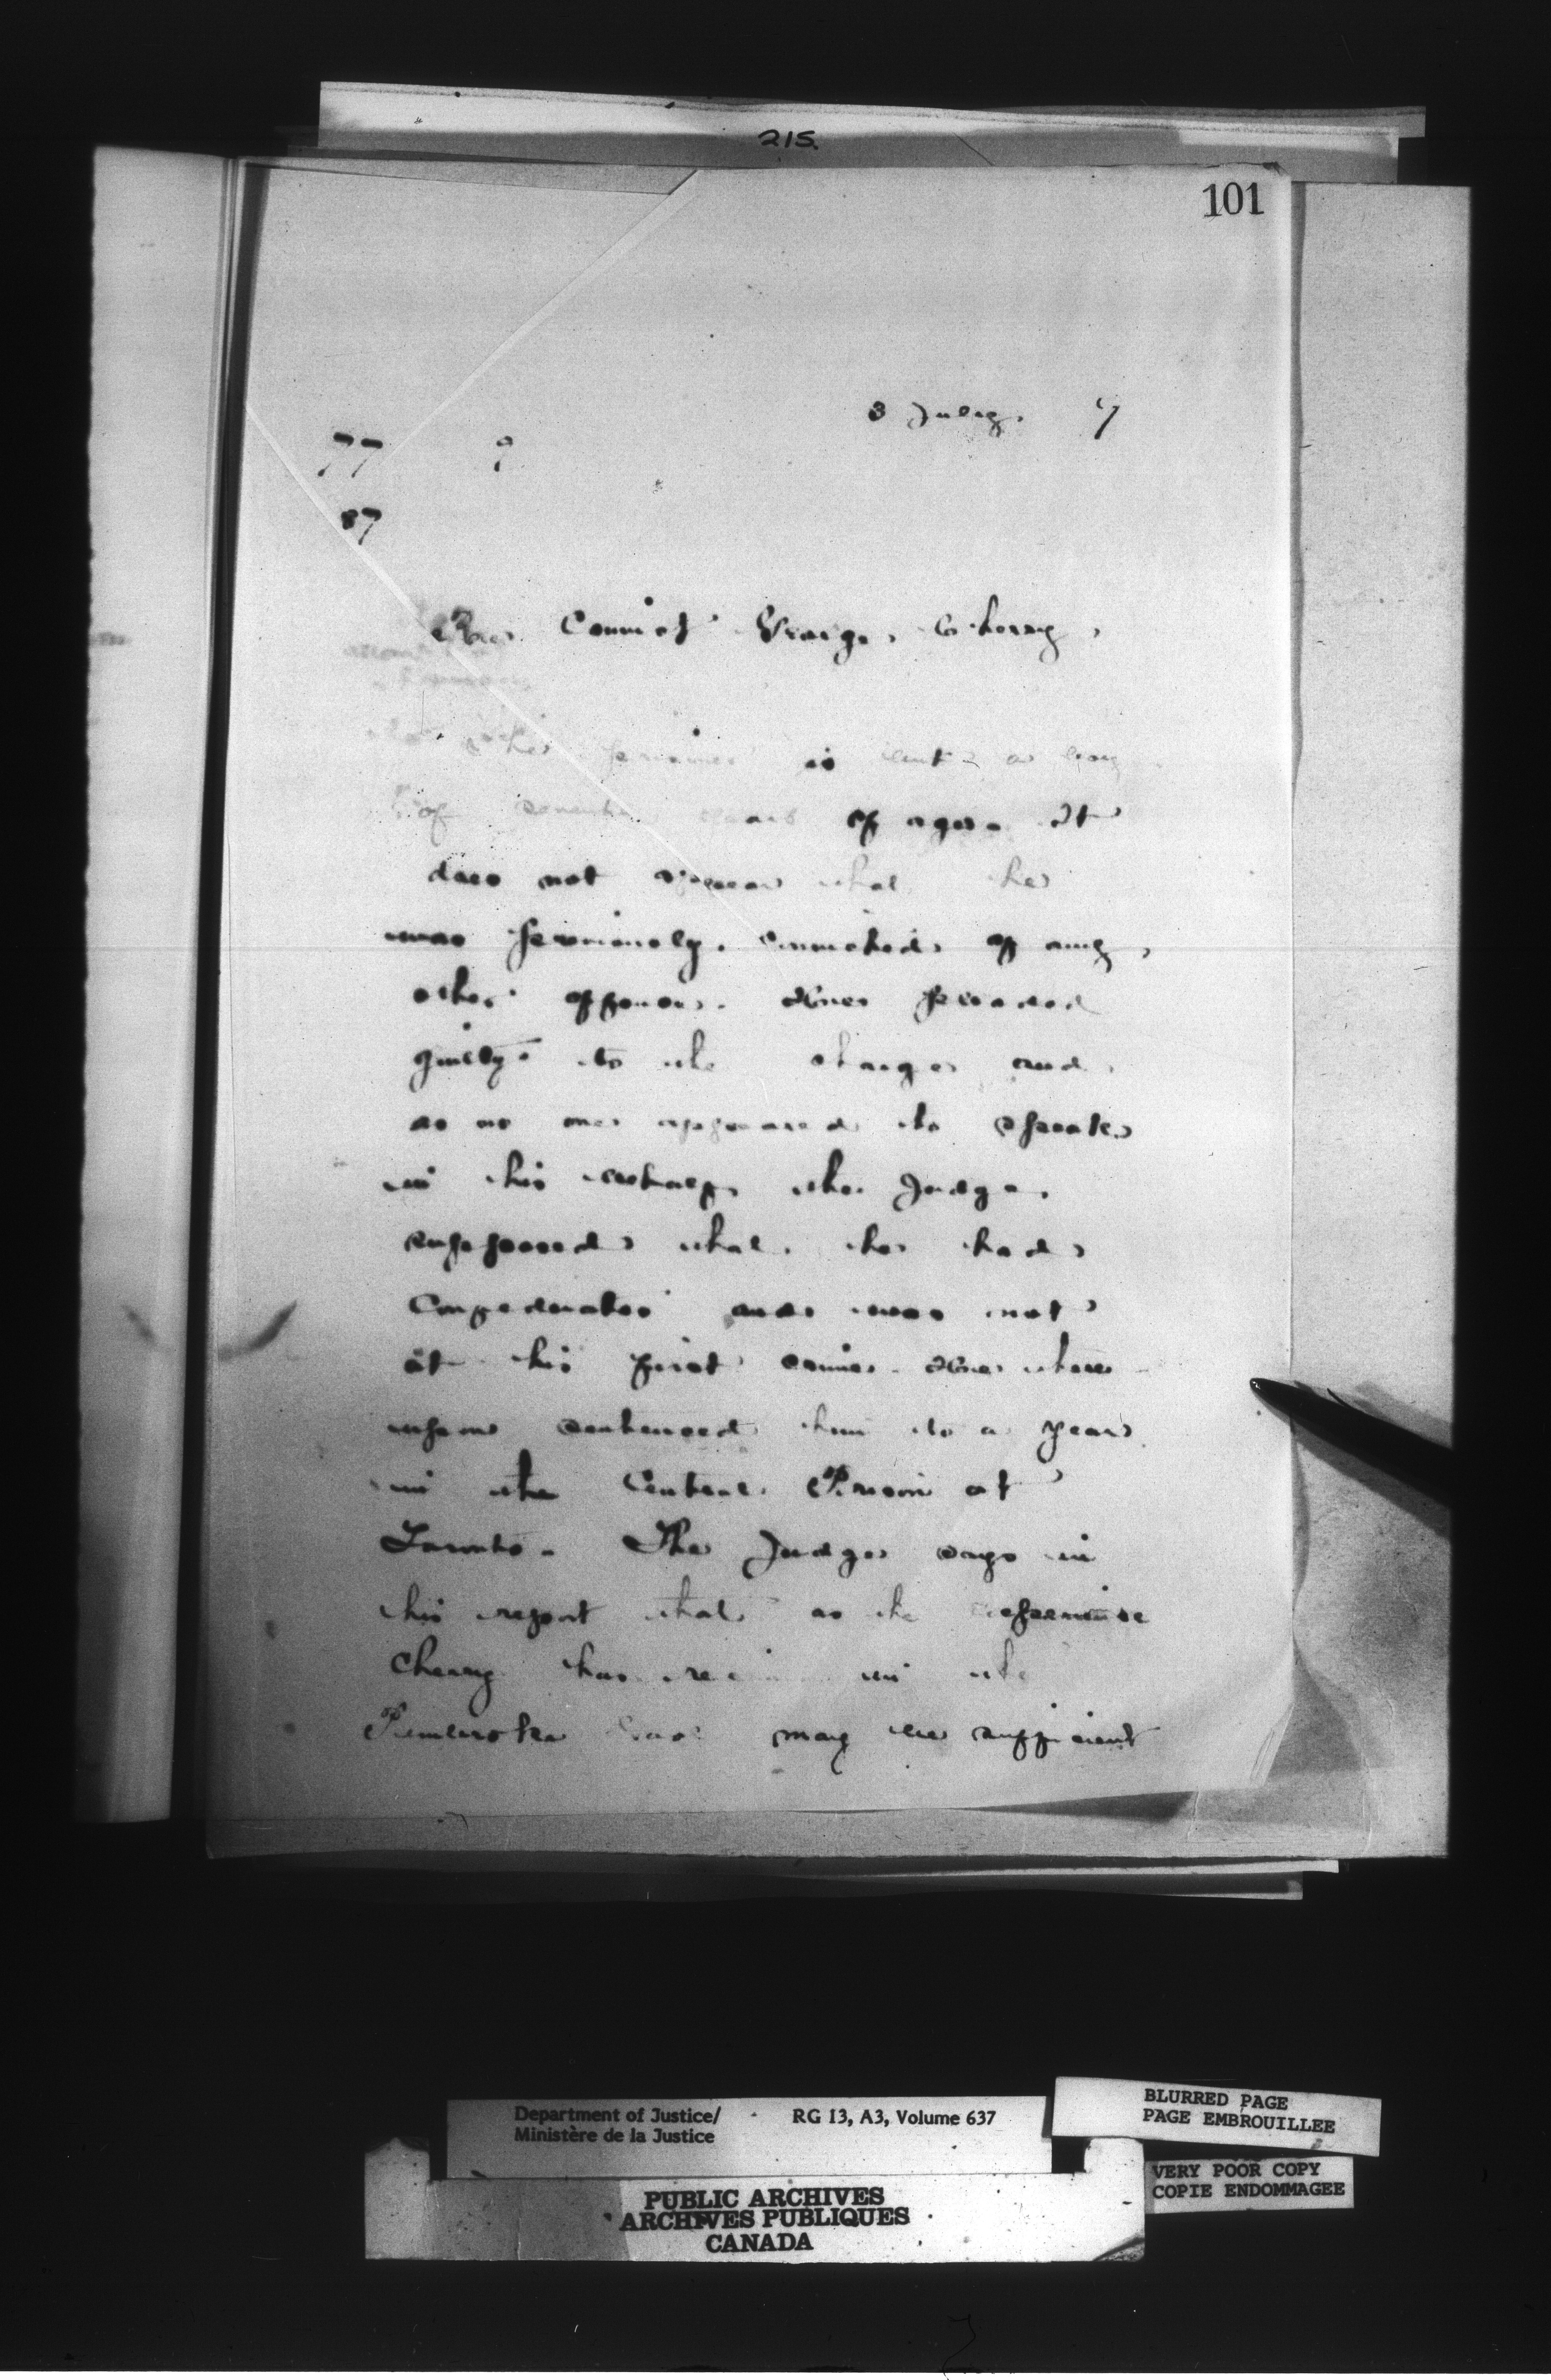 215.
101
3 July. 7
77 9
87
Re Convict George Cherry
The prisoner is but a boy
of seventeen years of age. It
does not appear that he
was previously convicted of any
other offence. He pleaded
guilty to the charge and
as no one appeared to speak
in his behalf the Judge
supposed that he had
Confederates and was not
at his first crime. He there
upon sentenced him to a year
in the Central Prison at
Toronto. The Judge says in
his report that as the experience
Cherry has re in the
Pembroke Gaol may be sufficient
Department of Justice/ RG 13, A3, Volume 637
Ministère de la Justice
BLURRED PAGE
PAGE EMBROUILLEE
VERY POOR COPY
COPIE ENDOMMAGEE
PUBLIC ARCHIVES
ARCHIVES PUBLIQUES
CANADA